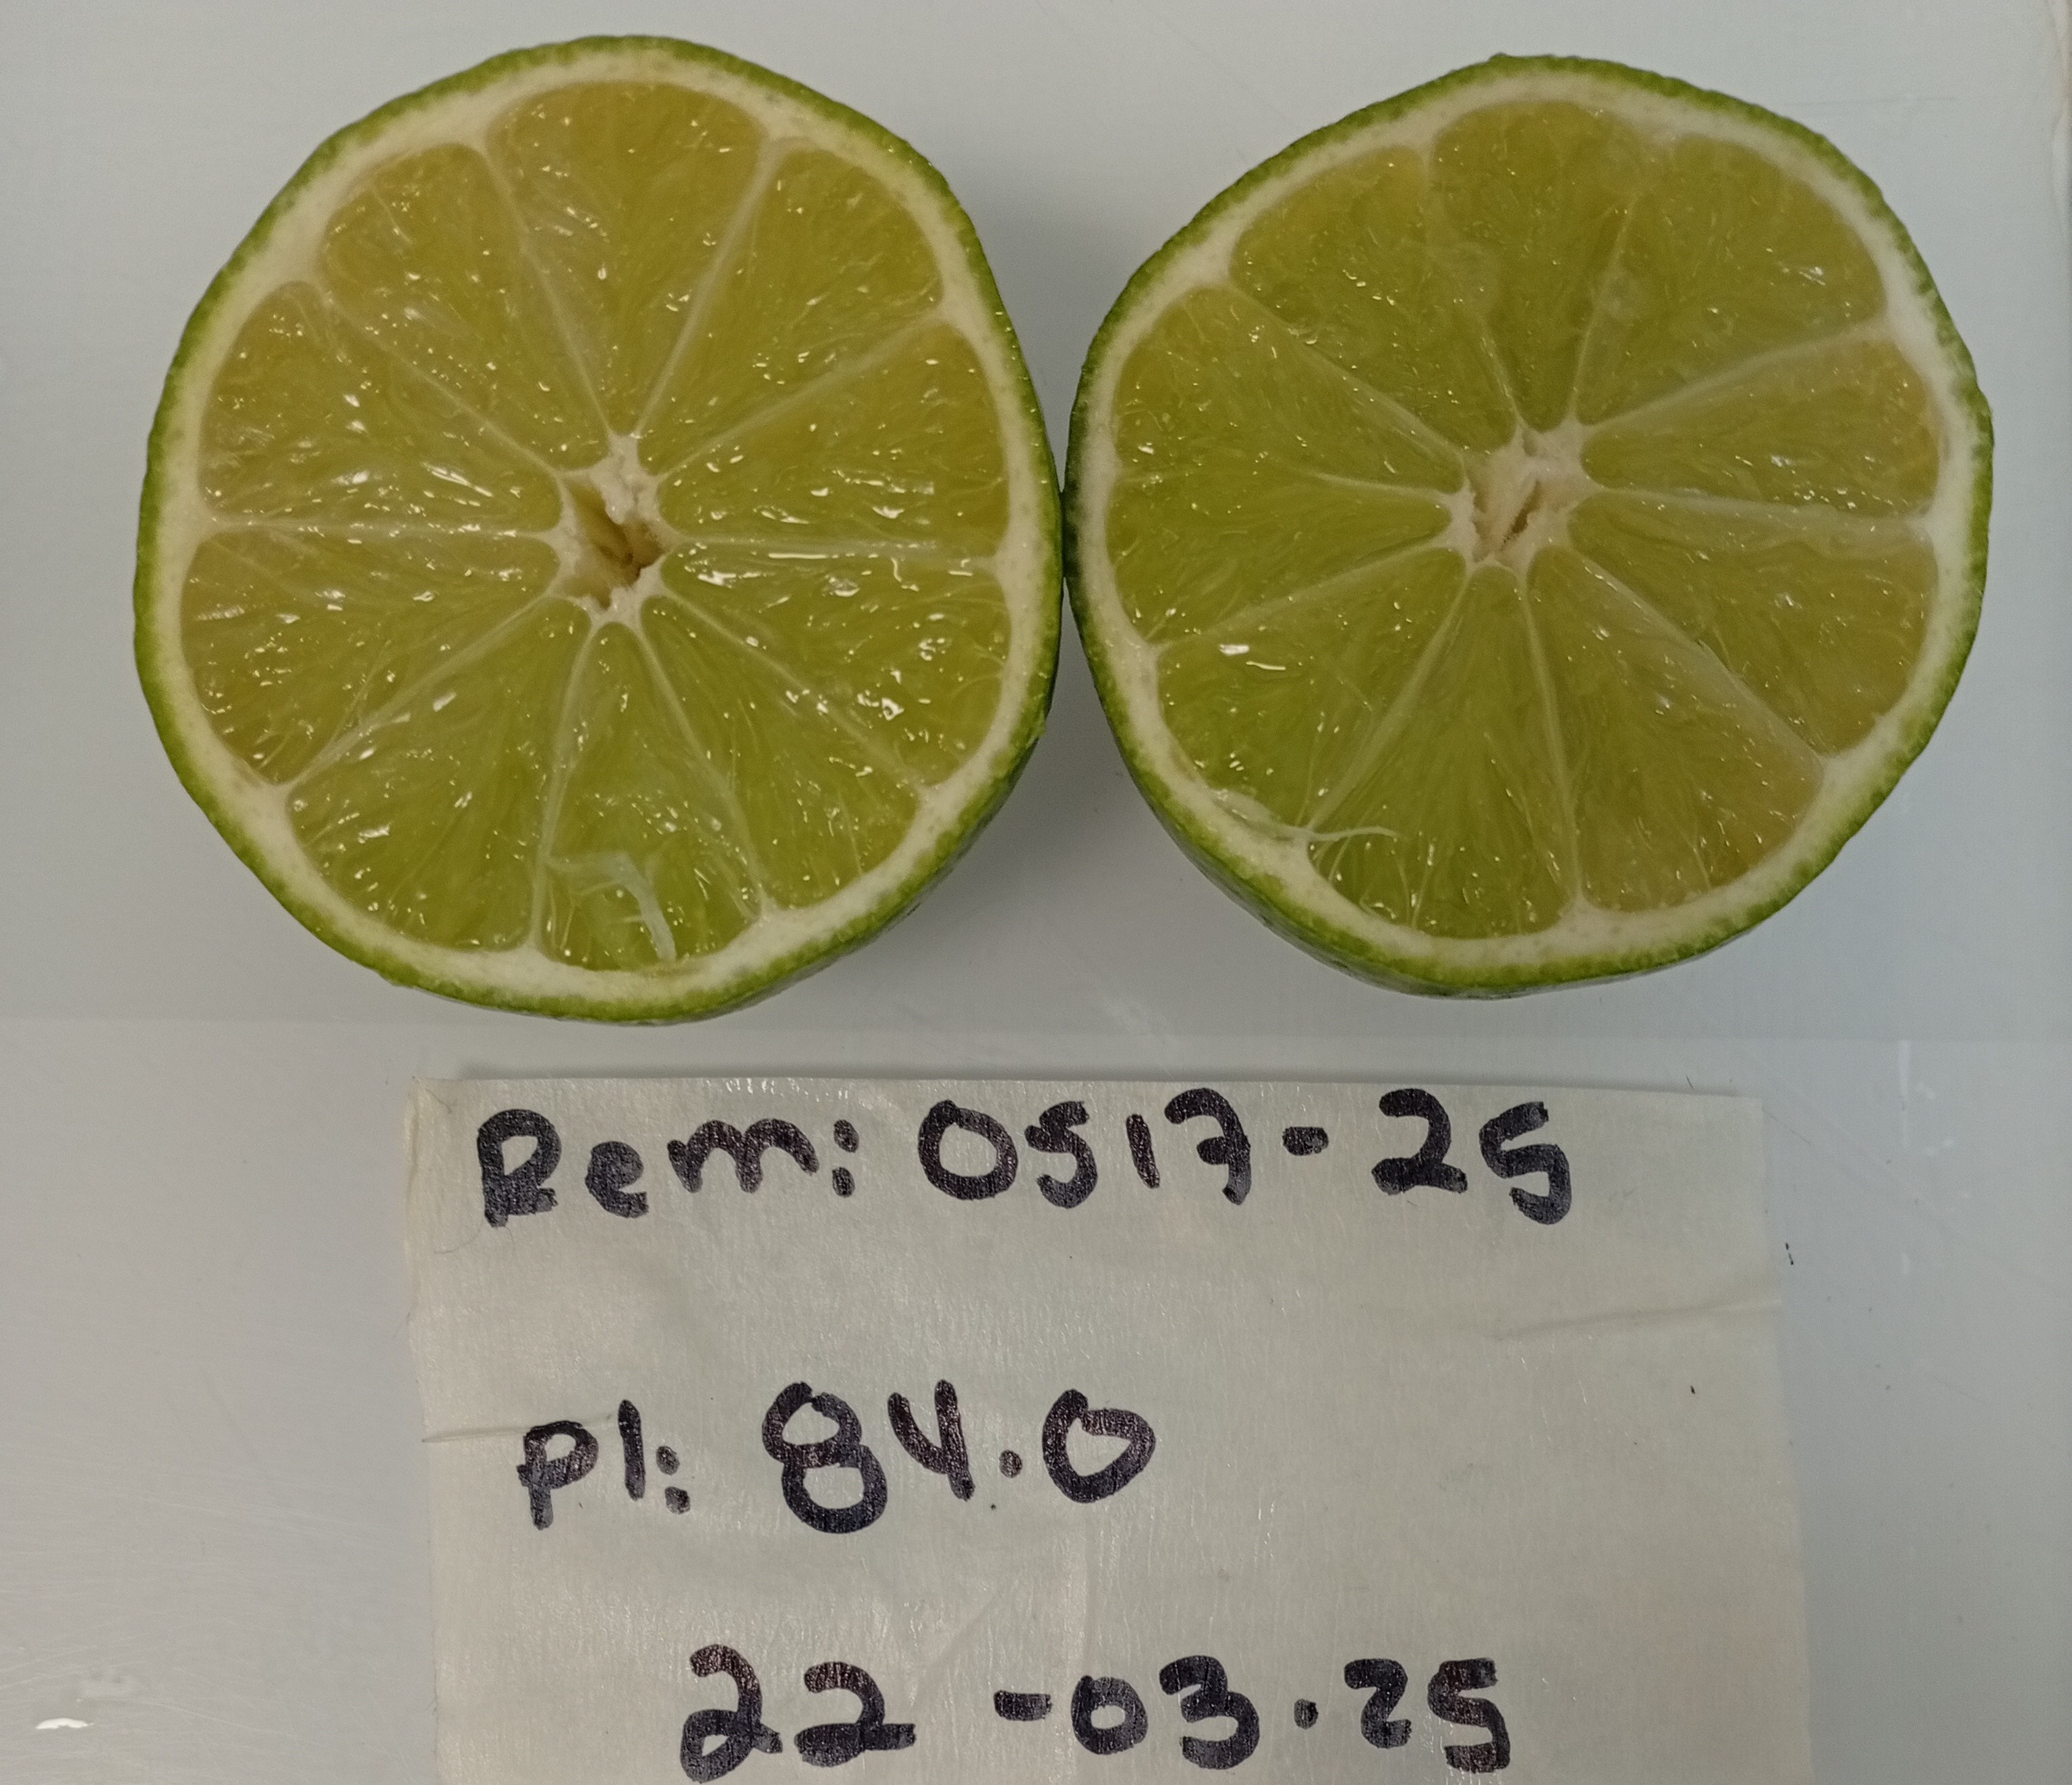 Rem: 0517-25
Pl: 84.0
22-03.25